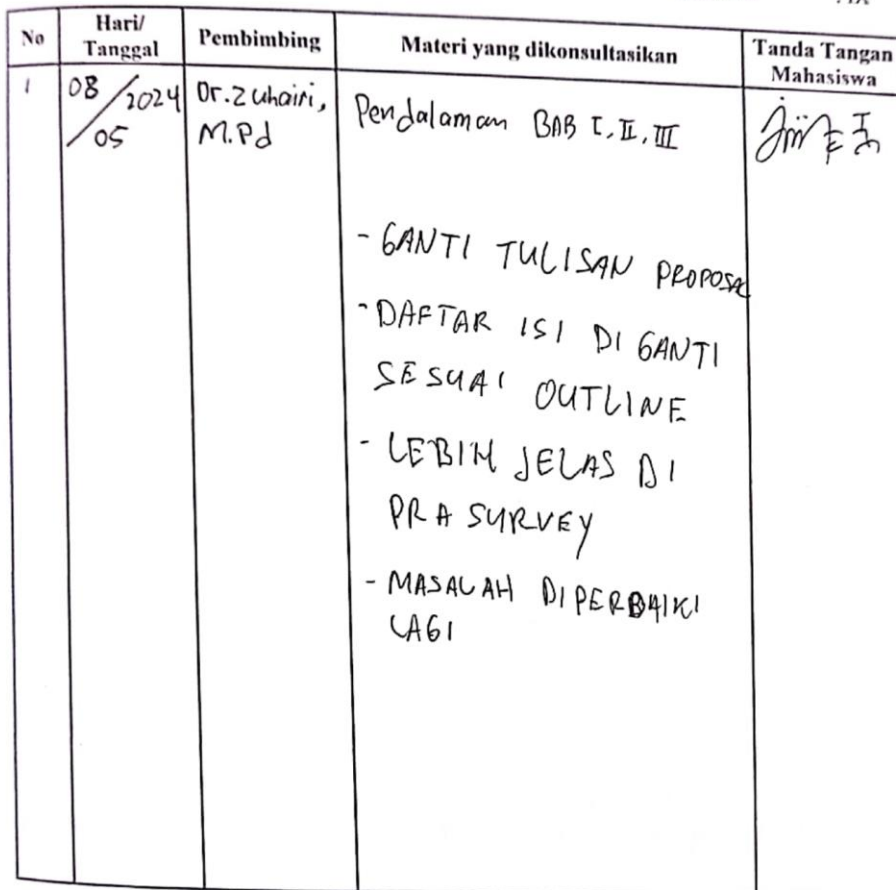 No
Hari/
Tanggal
Pembimbing
Materi yang dikonsultasikan
Tanda Tangan
Mahasiswa
1
08/2024
/05
Dr. Zuhairi,
M.Pd
Pendalaman BAB I, II, III
- GANTI TULISAN PROPOSAL
- DAFTAR ISI DI GANTI
SESUAI OUTLINE
- LEBIH JELAS DI
PRA SURVEY
- MASALAH DIPERBAIKI
LAGI